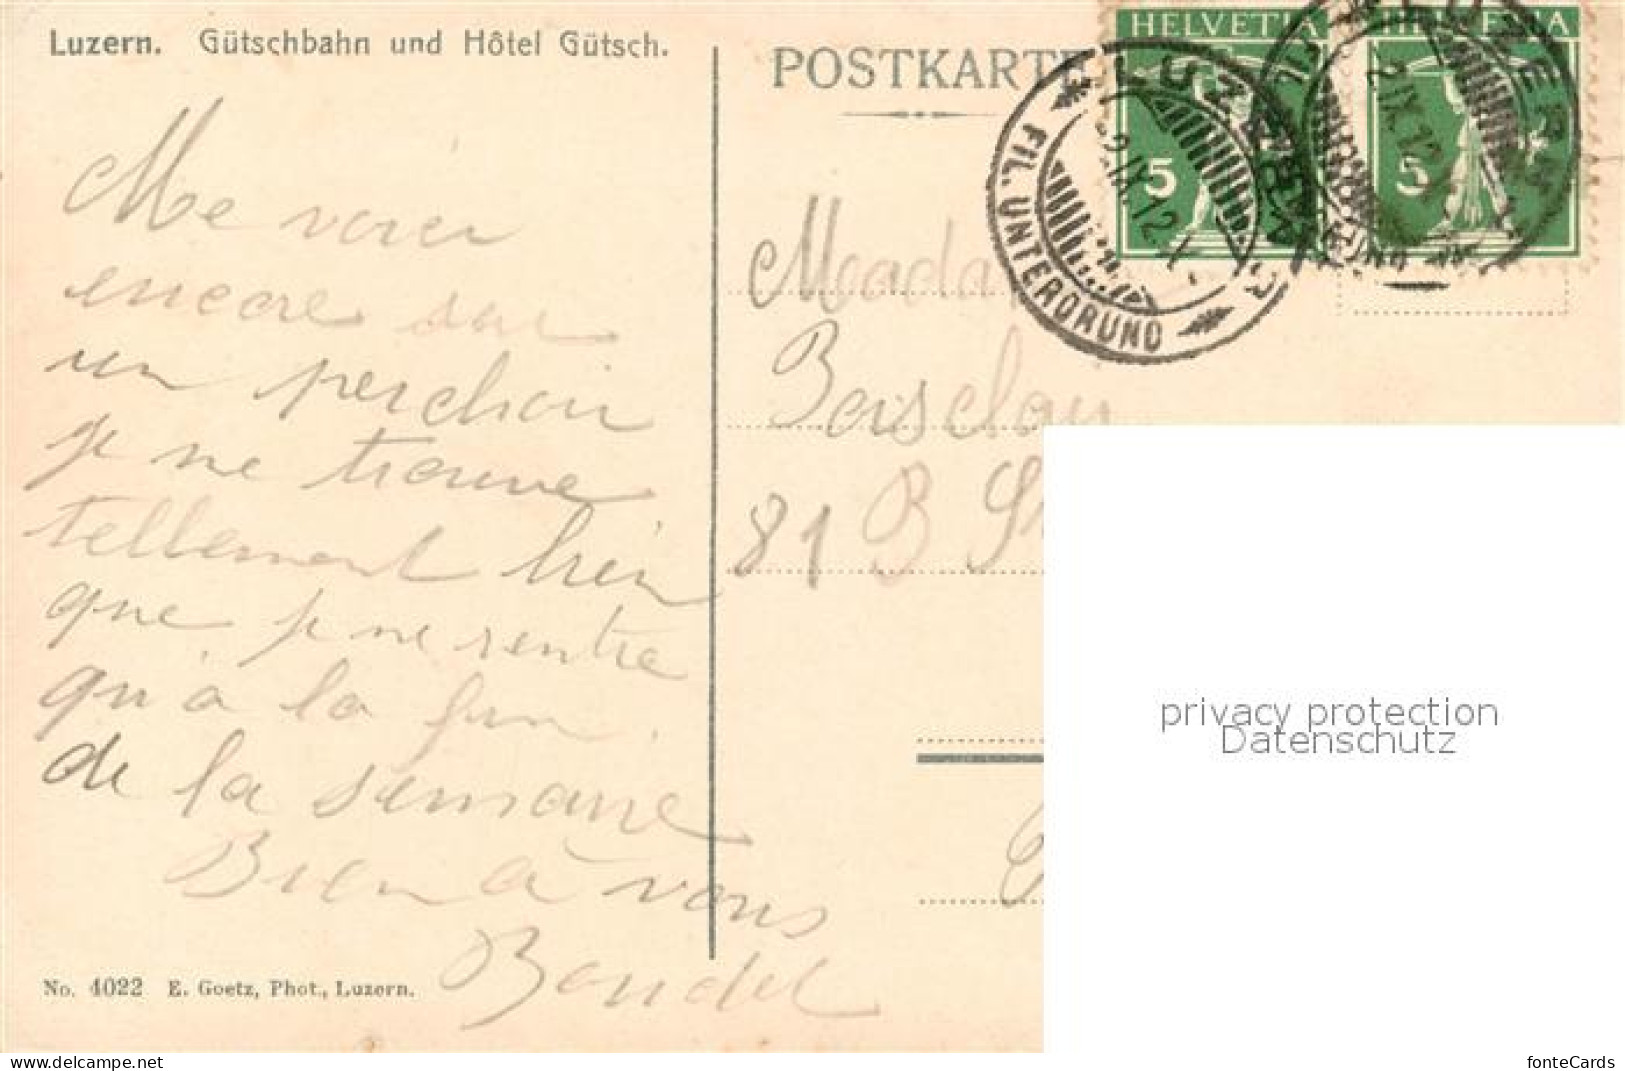 Luzern. Gütschbahn und Hôtel Gütsch.
POSTKARTE
HELVETIA
HELVETIA
5
5
LUZERN
2.IX.12.
FIL. UNTERGRUND
LUZERN
2.IX.12
Me voici
encore sur
un perchoir
je ne trouve
tellement bien
que je ne rentre
qu'à la fin
de la semaine
Bien à vous
81 B
No. 4022 E. Goetz, Phot., Luzern.
privacy protection
Datenschutz
fonteCards
www.delcampe.net